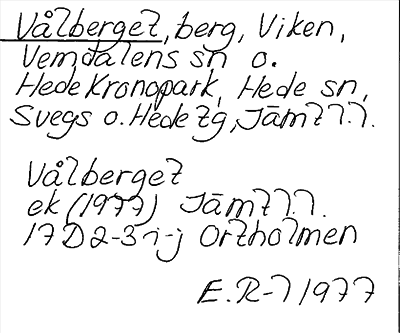 Vålberget, berg, Viken,
Vemdalens sn o.
Hede Kronopark, Hede sn,
Svegs o. Hede tg, Jämtl.l.
Vålberget
ek (1977) Jämtl.l.
17D 2-3 i-j Ortholmen
E. R-l 1977